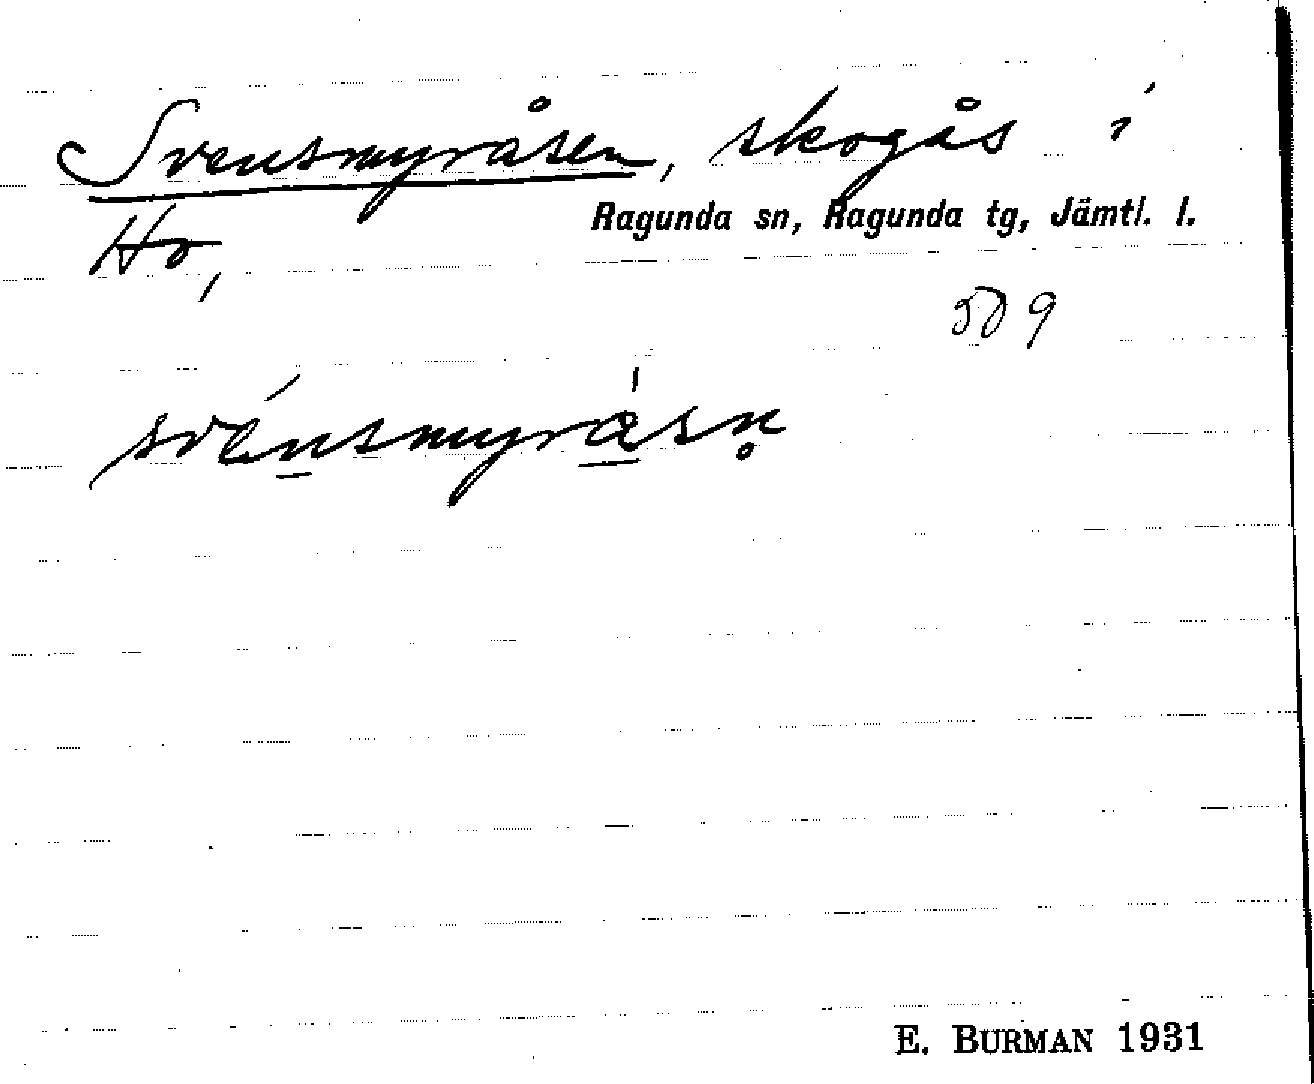 Svensmyråsen, skogås i
Ragunda sn, Ragunda tg, Jämtl. l.
Ho,
509
svénsmyråsn̥
E. BURMAN 1931